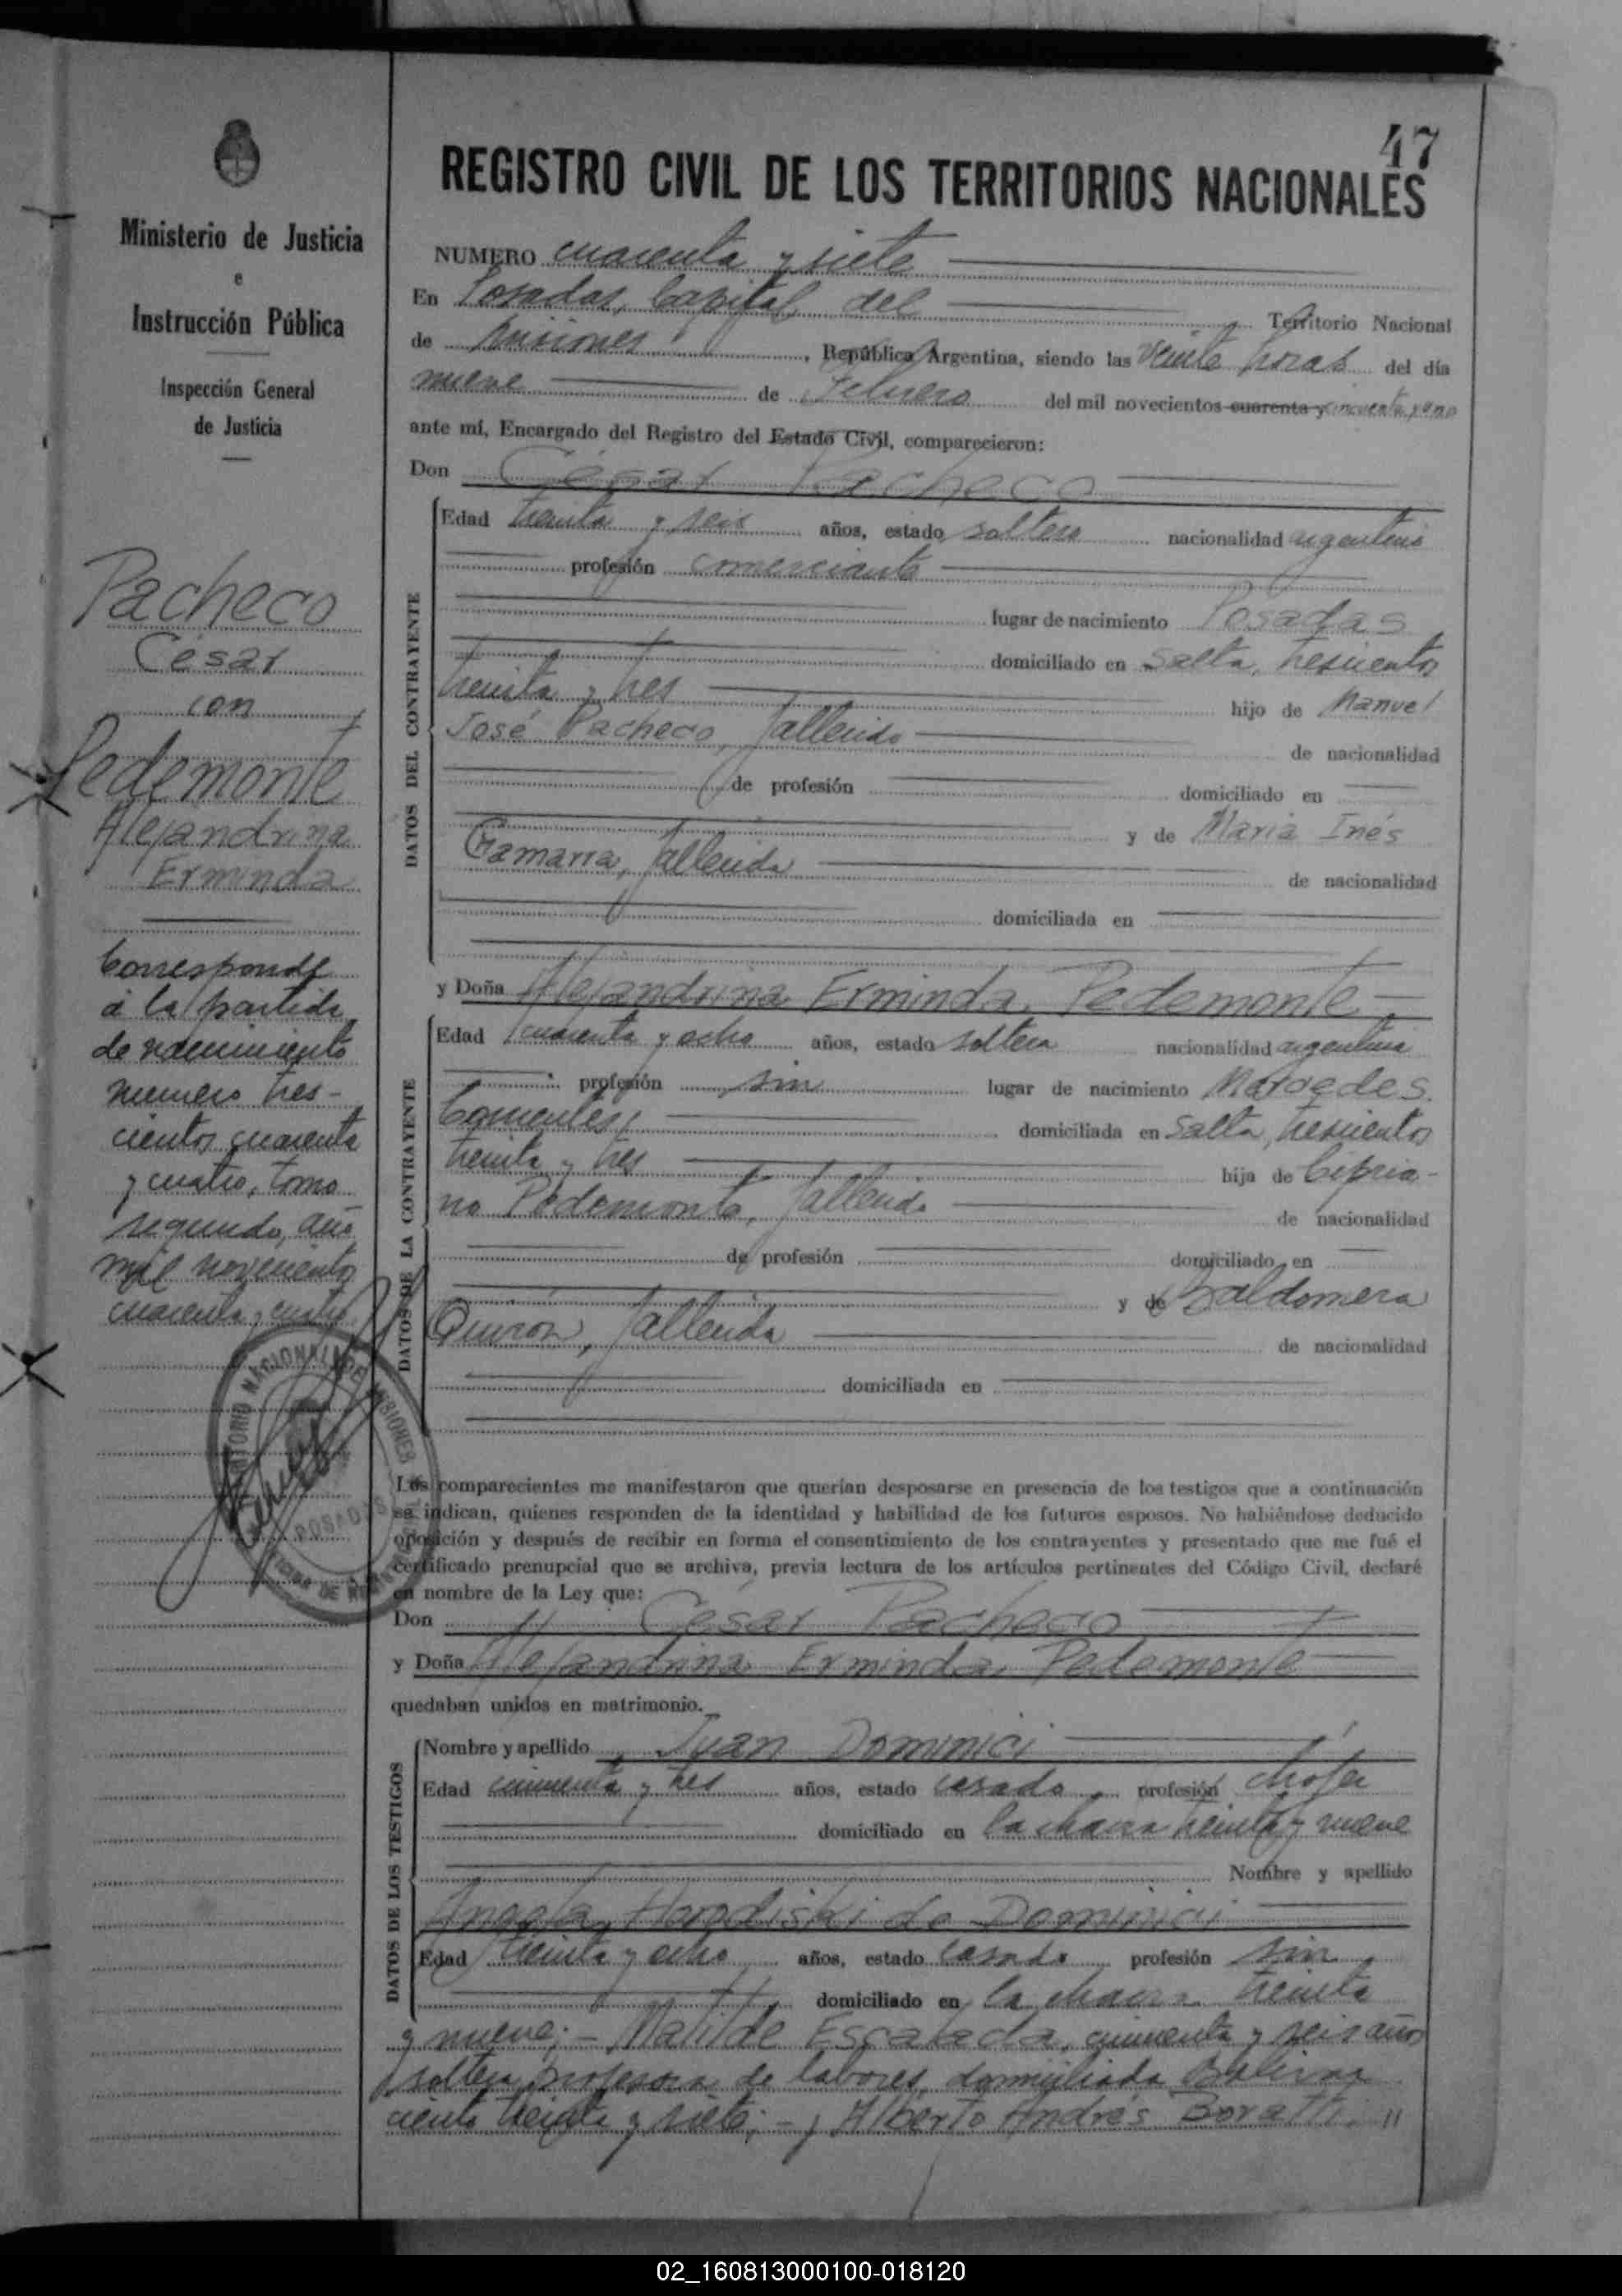 47
Ministerio de Justicia
e
Instrucción Pública
Inspección General
de Justicia
Pacheco
César
con
Pedemonte
Alejandrina
Erminda
Corresponde
a la partida
de nacimiento
numero tres-
cientos cuarenta
y cuatro, tomo
segundo, año
mil novecientos
cuarenta y cuatro
REGISTRO CIVIL DE LOS TERRITORIOS NACIONALES
NUMERO cuarenta y siete
En Posadas, Capital del Territorio Nacional
de Misiones, República Argentina, siendo las veinte horas del día
nueve de Febrero del mil novecientos cuarenta y cincuenta y uno
ante mí, Encargado del Registro del Estado Civil, comparecieron:
Don César Pacheco
DATOS DEL CONTRAYENTE
Edad treinta y seis años, estado soltero nacionalidad argentino
profesión comerciante
lugar de nacimiento Posadas
domiciliado en Salta, trescientos
treinta y tres hijo de Manuel
José Pacheco, fallecido de nacionalidad
de profesión domiciliado en
y de María Inés
Gamarra, fallecida de nacionalidad
domiciliada en
y Doña Alejandrina Erminda Pedemonte
DATOS DE LA CONTRAYENTE
Edad cuarenta y ocho años, estado soltera nacionalidad argentina
profesión sin lugar de nacimiento Mercedes.
Corrientes, domiciliada en Salta, trescientos
treinta y tres hija de Cipria-
no Pedemonte, fallecido de nacionalidad
de profesión domiciliado en
y de Baldomera
Quirón, fallecida de nacionalidad
domiciliada en
Los comparecientes me manifestaron que querían desposarse en presencia de los testigos que a continuación
se indican, quienes responden de la identidad y habilidad de los futuros esposos. No habiéndose deducido
oposición y después de recibir en forma el consentimiento de los contrayentes y presentado que me fué el
certificado prenupcial que se archiva, previa lectura de los artículos pertinentes del Código Civil, declaré
en nombre de la Ley que:
Don César Pacheco
y Doña Alejandrina Erminda Pedemonte
quedaban unidos en matrimonio.
DATOS DE LOS TESTIGOS
Nombre y apellido Juan Dominici
Edad cincuenta y tres años, estado casado profesión chofer
domiciliado en la chacra treinta y nueve
Nombre y apellido
Angela de Dominici
Edad treinta y ocho años, estado casada profesión sin
domiciliado en la chacra treinta
y nueve; - Matilde Escalada, cincuenta y seis años
soltera, profesora de labores, domiciliada Bolívar
ciento treinta y siete; - y Alberto Andrés "
POSADAS
02_160813000100-018120